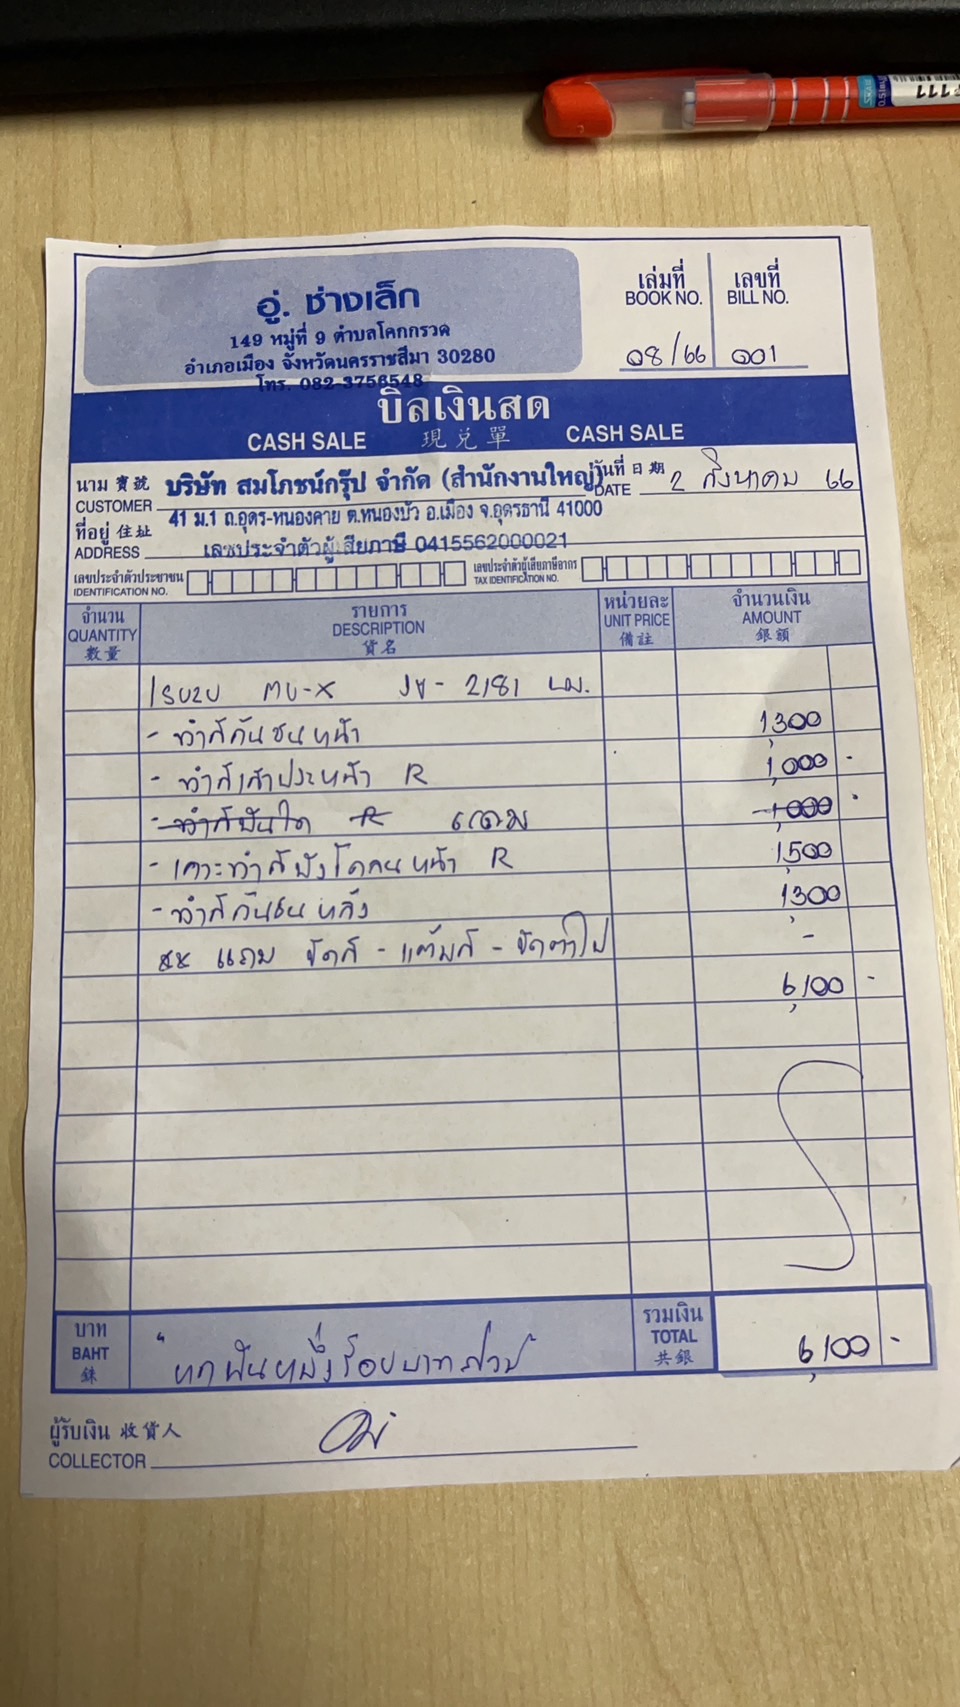 อู่. ช่างเล็ก
149 หมู่ที่ 9 ตำบลโคกกรวด
อำเภอเมือง จังหวัดนครราชสีมา 30280
โทร. 082-3756548
เล่มที่ เลขที่
BOOK NO. BILL NO.
08/66 001
บิลเงินสด
CASH SALE 現兌單 CASH SALE
นาม 寳號 บริษัท สมโภชน์กรุ๊ป จำกัด (สำนักงานใหญ่) วันที่ 日期
CUSTOMER DATE 2 สิงหาคม 66
ที่อยู่ 住址 41 ม.1 ถ.อุดร-หนองคาย ต.หนองบัว อ.เมือง จ.อุดรธานี 41000
ADDRESS เลขประจำตัวผู้เสียภาษี 0415562000021
เลขประจำตัวประชาชน เลขประจำตัวผู้เสียภาษีอากร
IDENTIFICATION NO. TAX IDENTIFICATION NO.
จำนวน รายการ หน่วยละ จำนวนเงิน
QUANTITY DESCRIPTION UNIT PRICE AMOUNT
數量 貨名 備註 銀額
ISUZU MU-X 2181 นม.
- ทำสีกันชนหน้า 1,300
- ทำสีเสาประหน้า R 1,000 -
- ทำสีบันได R แถม 1,000 -
- เคาะทำสีบังโคลนหน้า R 1,500
- ทำสีกันชนหลัง 1,300
** แถม ขัดสี - แต้มสี - ขัดตาไฟ -
6,100 -
บาท รวมเงิน
BAHT TOTAL
銖 共銀
" หกพันหนึ่งร้อยบาทถ้วน " 6,100 -
ผู้รับเงิน 收貨人
COLLECTOR
111